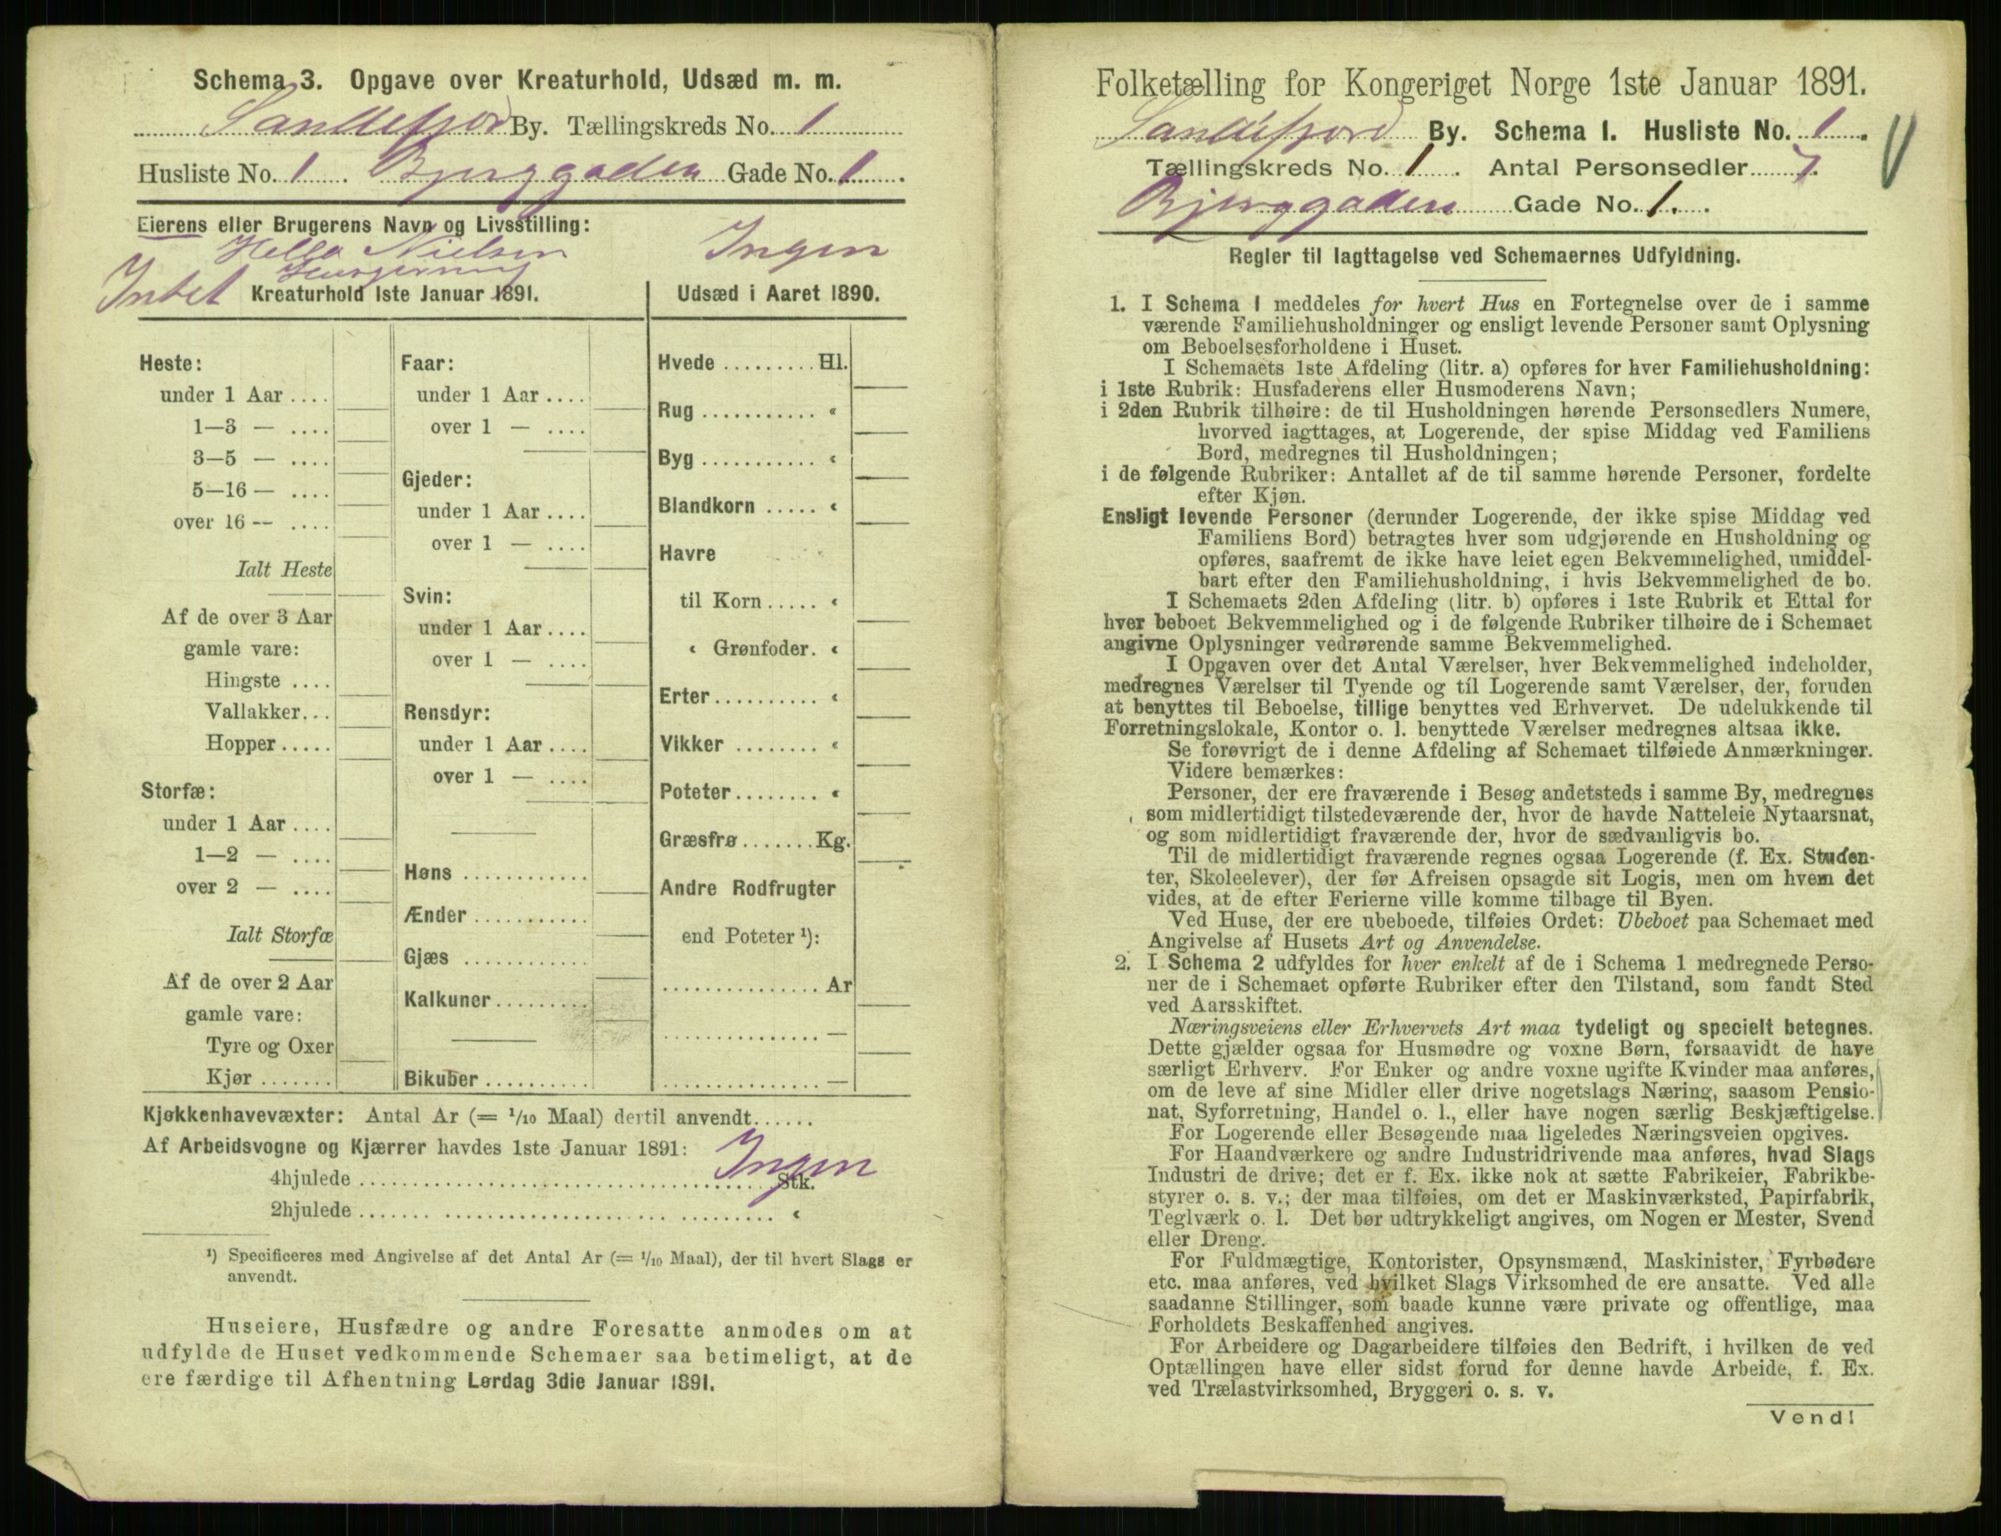 Schema 3. Opgave over Kreaturhold, Udsæd m. m.
Sandefjord By. Tællingskreds No. 1
Husliste No. 1. Bjerggaden Gade No. 1.
Eierens eller Brugerens Navn og Livsstilling:
Nielsen
Ingen
Intet
Kreaturhold 1ste Januar 1891.
Udsæd i Aaret 1890.
Heste:
under 1 Aar ....
1—3 — ....
3—5 — ....
5—16 — ....
over 16 -- ....
Ialt Heste
Af de over 3 Aar
gamle vare:
Hingste ....
Vallakker...
Hopper.....
Storfæ:
under 1 Aar ....
1—2 — ....
over 2 — ....
Ialt Storfæ
Af de over 2 Aar
gamle vare:
Tyre og Oxer
Kjør .......
Faar:
under 1 Aar ....
over 1 — ....
Gjeder:
under 1 Aar ....
over 1 — ....
Svin:
under 1 Aar ....
over 1 — ....
Rensdyr:
under 1 Aar ....
over 1 — ....
Høns ............
Ænder ...........
Gjæs ............
Kalkuner.........
Bikuber ..........
Hvede ......... Hl.
Rug ........... «
Byg ........... «
Blandkorn ..... «
Havre
til Korn ..... «
« Grønfoder. «
Erter.......... «
Vikker ........ «
Poteter........ «
Græsfrø ....... Kg.
Andre Rodfrugter
end Poteter ¹):
............... Ar
............... —
............... —
Kjøkkenhavevæxter: Antal Ar (= 1/10 Maal) dertil anvendt......
Af Arbeidsvogne og Kjærrer havdes 1ste Januar 1891: Ingen
4hjulede ........................................ Stk.
2hjulede ........................................ «
¹) Specificeres med Angivelse af det Antal Ar (= 1/10 Maal), der til hvert Slags er
anvendt.
Huseiere, Husfædre og andre Foresatte anmodes om at
udfylde de Huset vedkommende Schemaer saa betimeligt, at de
ere færdige til Afhentning Lørdag 3die Januar 1891.
Folketælling for Kongeriget Norge 1ste Januar 1891.
Sandefjord By. Schema I. Husliste No. 1.
Tællingskreds No. 1. Antal Personsedler 7.
Bjerggaden Gade No. 1.
Regler til Iagttagelse ved Schemaernes Udfyldning.
1. I Schema 1 meddeles for hvert Hus en Fortegnelse over de i samme
værende Familiehusholdninger og ensligt levende Personer samt Oplysning
om Beboelsesforholdene i Huset.
I Schemaets 1ste Afdeling (litr. a) opføres for hver Familiehusholdning:
i 1ste Rubrik: Husfaderens eller Husmoderens Navn;
i 2den Rubrik tilhøire: de til Husholdningen hørende Personsedlers Numere,
hvorved iagttages, at Logerende, der spise Middag ved Familiens
Bord, medregnes til Husholdningen;
i de følgende Rubriker: Antallet af de til samme hørende Personer, fordelte
efter Kjøn.
Ensligt levende Personer (derunder Logerende, der ikke spise Middag ved
Familiens Bord) betragtes hver som udgjørende en Husholdning og
opføres, saafremt de ikke have leiet egen Bekvemmelighed, umiddel-
bart efter den Familiehusholdning, i hvis Bekvemmelighed de bo.
I Schemaets 2den Afdeling (litr. b) opføres i 1ste Rubrik et Ettal for
hver beboet Bekvemmelighed og i de følgende Rubriker tilhøire de i Schemaet
angivne Oplysninger vedrørende samme Bekvemmelighed.
I Opgaven over det Antal Værelser, hver Bekvemmelighed indeholder,
medregnes Værelser til Tyende og til Logerende samt Værelser, der, foruden
at benyttes til Beboelse, tillige benyttes ved Erhvervet. De udelukkende til
Forretningslokale, Kontor o. l. benyttede Værelser medregnes altsaa ikke.
Se forøvrigt de i denne Afdeling af Schemaet tilføiede Anmærkninger.
Videre bemærkes:
Personer, der ere fraværende i Besøg andetsteds i samme By, medregnes
som midlertidigt tilstedeværende der, hvor de havde Natteleie Nytaarsnat,
og som midlertidigt fraværende der, hvor de sædvanligvis bo.
Til de midlertidigt fraværende regnes ogsaa Logerende (f. Ex. Studen-
ter, Skoleelever), der før Afreisen opsagde sit Logis, men om hvem det
vides, at de efter Ferierne ville komme tilbage til Byen.
Ved Huse, der ere ubeboede, tilføies Ordet: Ubeboet paa Schemaet med
Angivelse af Husets Art og Anvendelse.
2. I Schema 2 udfyldes for hver enkelt af de i Schema 1 medregnede Perso-
ner de i Schemaet opførte Rubriker efter den Tilstand, som fandt Sted
ved Aarsskiftet.
Næringsveiens eller Erhvervets Art maa tydeligt og specielt betegnes.
Dette gjælder ogsaa for Husmødre og voxne Børn, forsaavidt de have
særligt Erhverv. For Enker og andre voxne ugifte Kvinder maa anføres,
om de leve af sine Midler eller drive nogetslags Næring, saasom Pensio-
nat, Syforretning, Handel o. l., eller have nogen særlig Beskjæftigelse.
For Logerende eller Besøgende maa ligeledes Næringsveien opgives.
For Haandværkere og andre Industridrivende maa anføres, hvad Slags
Industri de drive; det er f. Ex. ikke nok at sætte Fabrikeier, Fabrikbe-
styrer o. s. v.; der maa tilføies, om det er Maskinværksted, Papirfabrik,
Teglværk o. l. Det bør udtrykkeligt angives, om Nogen er Mester, Svend
eller Dreng.
For Fuldmægtige, Kontorister, Opsynsmænd, Maskinister, Fyrbødere
etc. maa anføres, ved hvilket Slags Virksomhed de ere ansatte. Ved alle
saadanne Stillinger, som baade kunne være private og offentlige, maa
Forholdets Beskaffenhed angives.
For Arbeidere og Dagarbeidere tilføies den Bedrift, i hvilken de ved
Optællingen have eller sidst forud for denne havde Arbeide, f. Ex.
ved Trælastvirksomhed, Bryggeri o. s. v.
Vend!